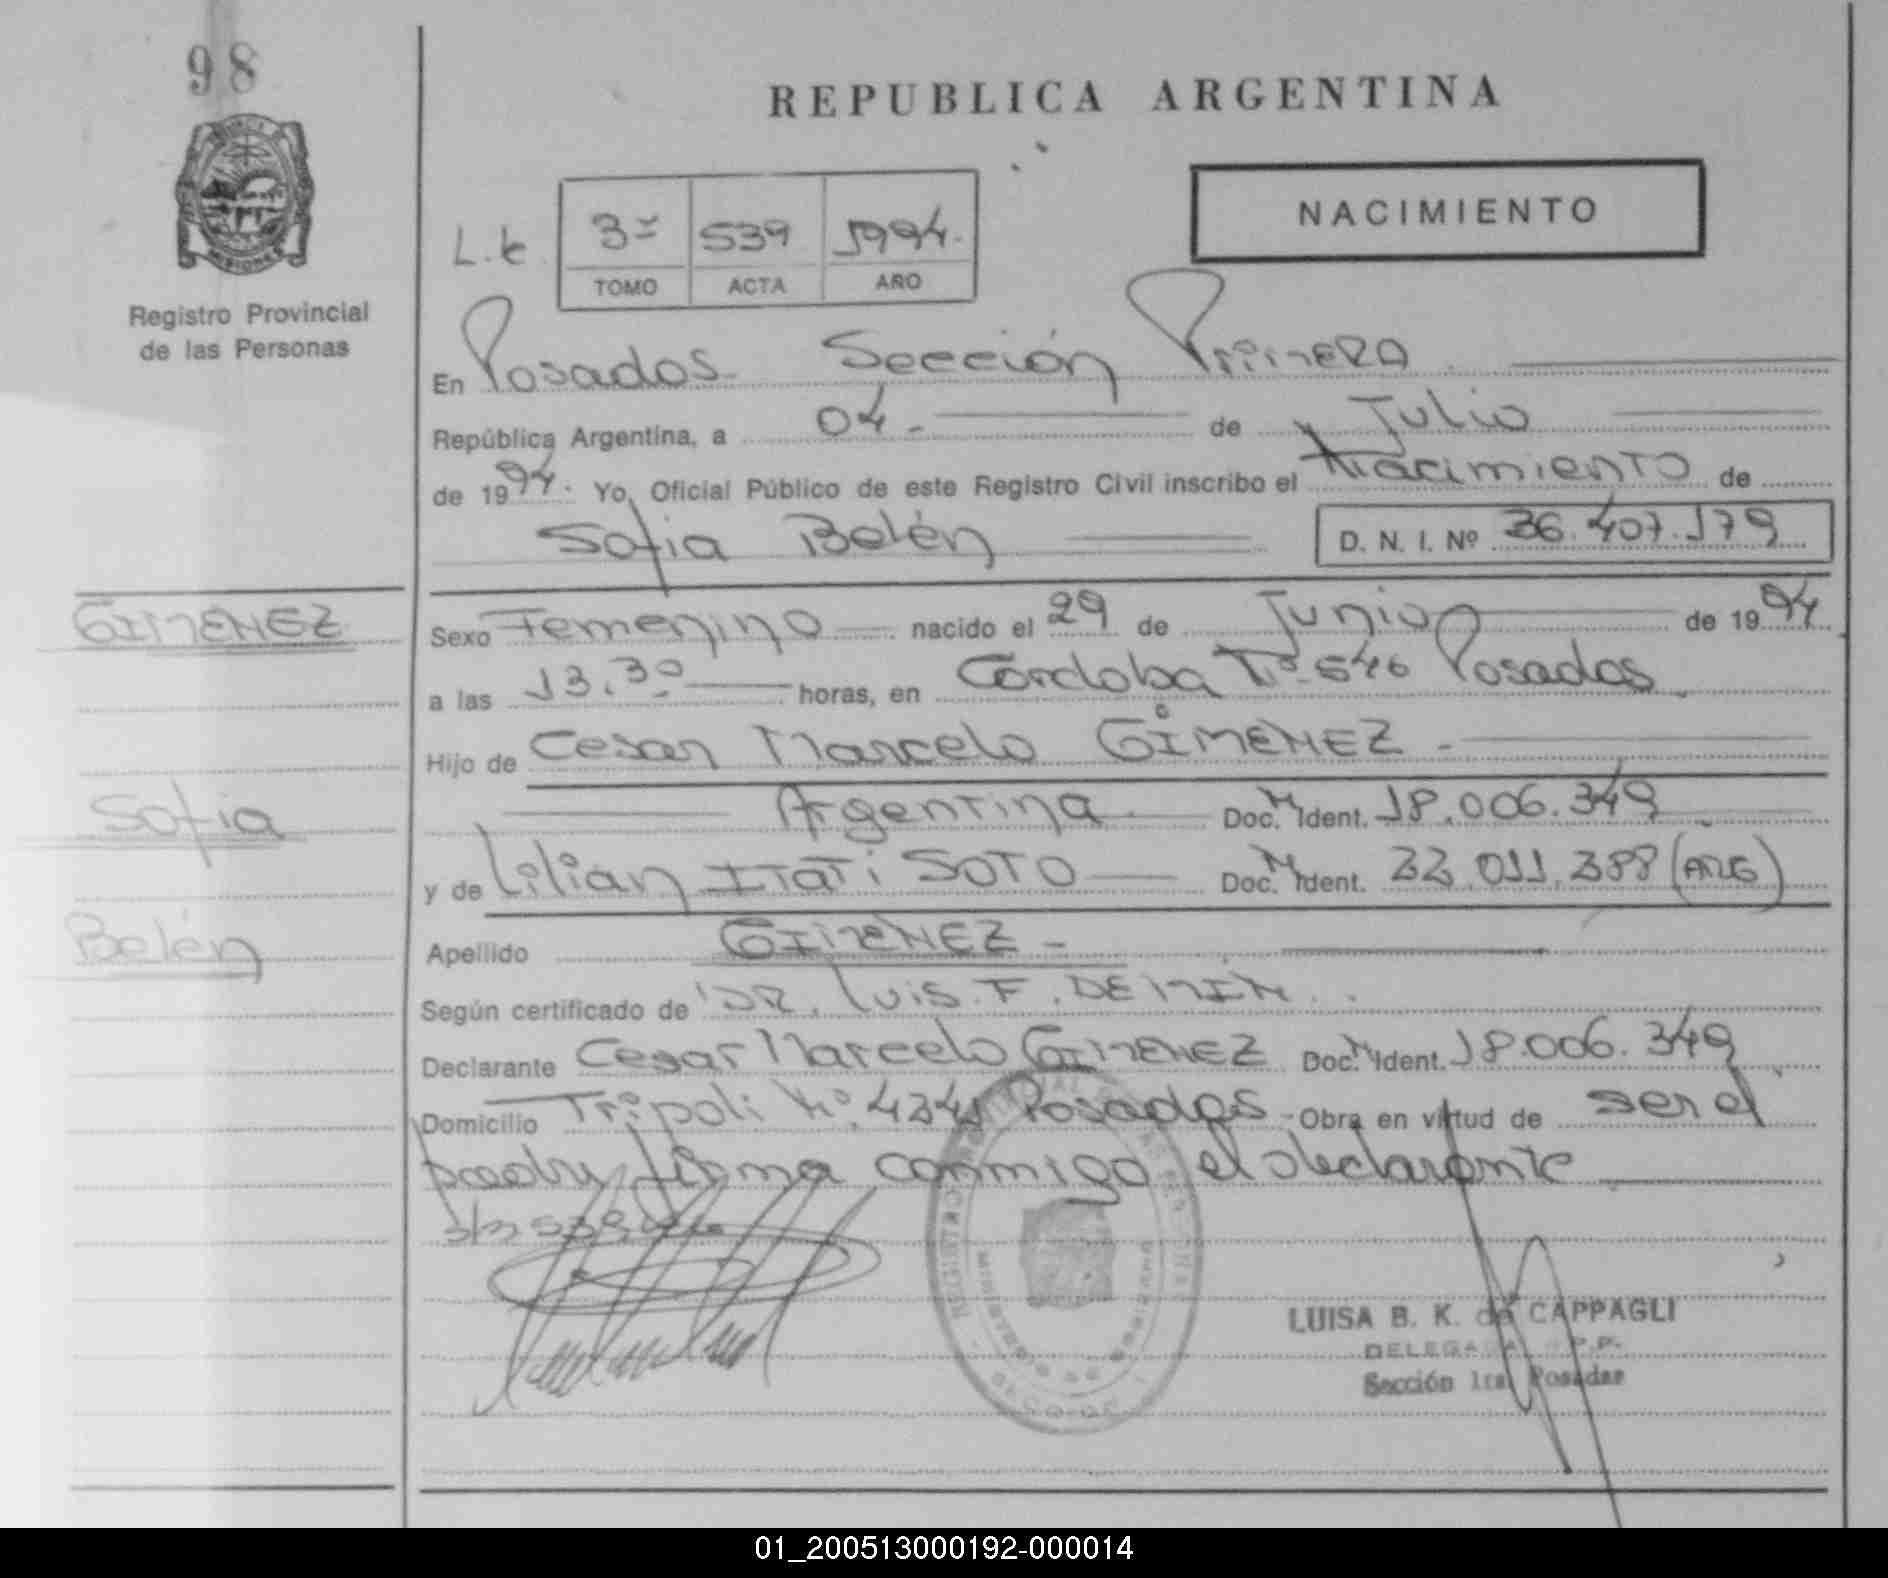 98
REPUBLICA ARGENTINA
MISIONES
Registro Provincial
de las Personas
3º 539 1994.
TOMO ACTA AÑO
NACIMIENTO
En Posadas Sección Primera
República Argentina, a 04 - de Julio
de 1994. Yo, Oficial Público de este Registro Civil inscribo el Nacimiento de
Sofia Belén D. N. I. Nº 36.407.179
GIMENEZ
Sofia
Belén
Sexo Femenino nacido el 29 de Junio de 1994
a las 13.30 horas, en Cordoba Nº 546 Posadas
Hijo de Cesar Marcelo GIMENEZ -
Argentina Doc. N Ident. 18.006.349
y de Lilian ITATI SOTO Doc. N Ident. 22.011.388 (ARG)
Apellido GIMENEZ -
Según certificado de DR. Luis. F.
Declarante Cesar Marcelo GIMENEZ Doc. N Ident. 18.006.349
Domicilio Tripoli Nº 4341 Posadas - Obra en virtud de ser el
padre firma conmigo el declarante
LUISA B. K. de CAPPAGLI
DELEGADA R.P.P.
Sección 1ra. Posadas
01_200513000192-000014